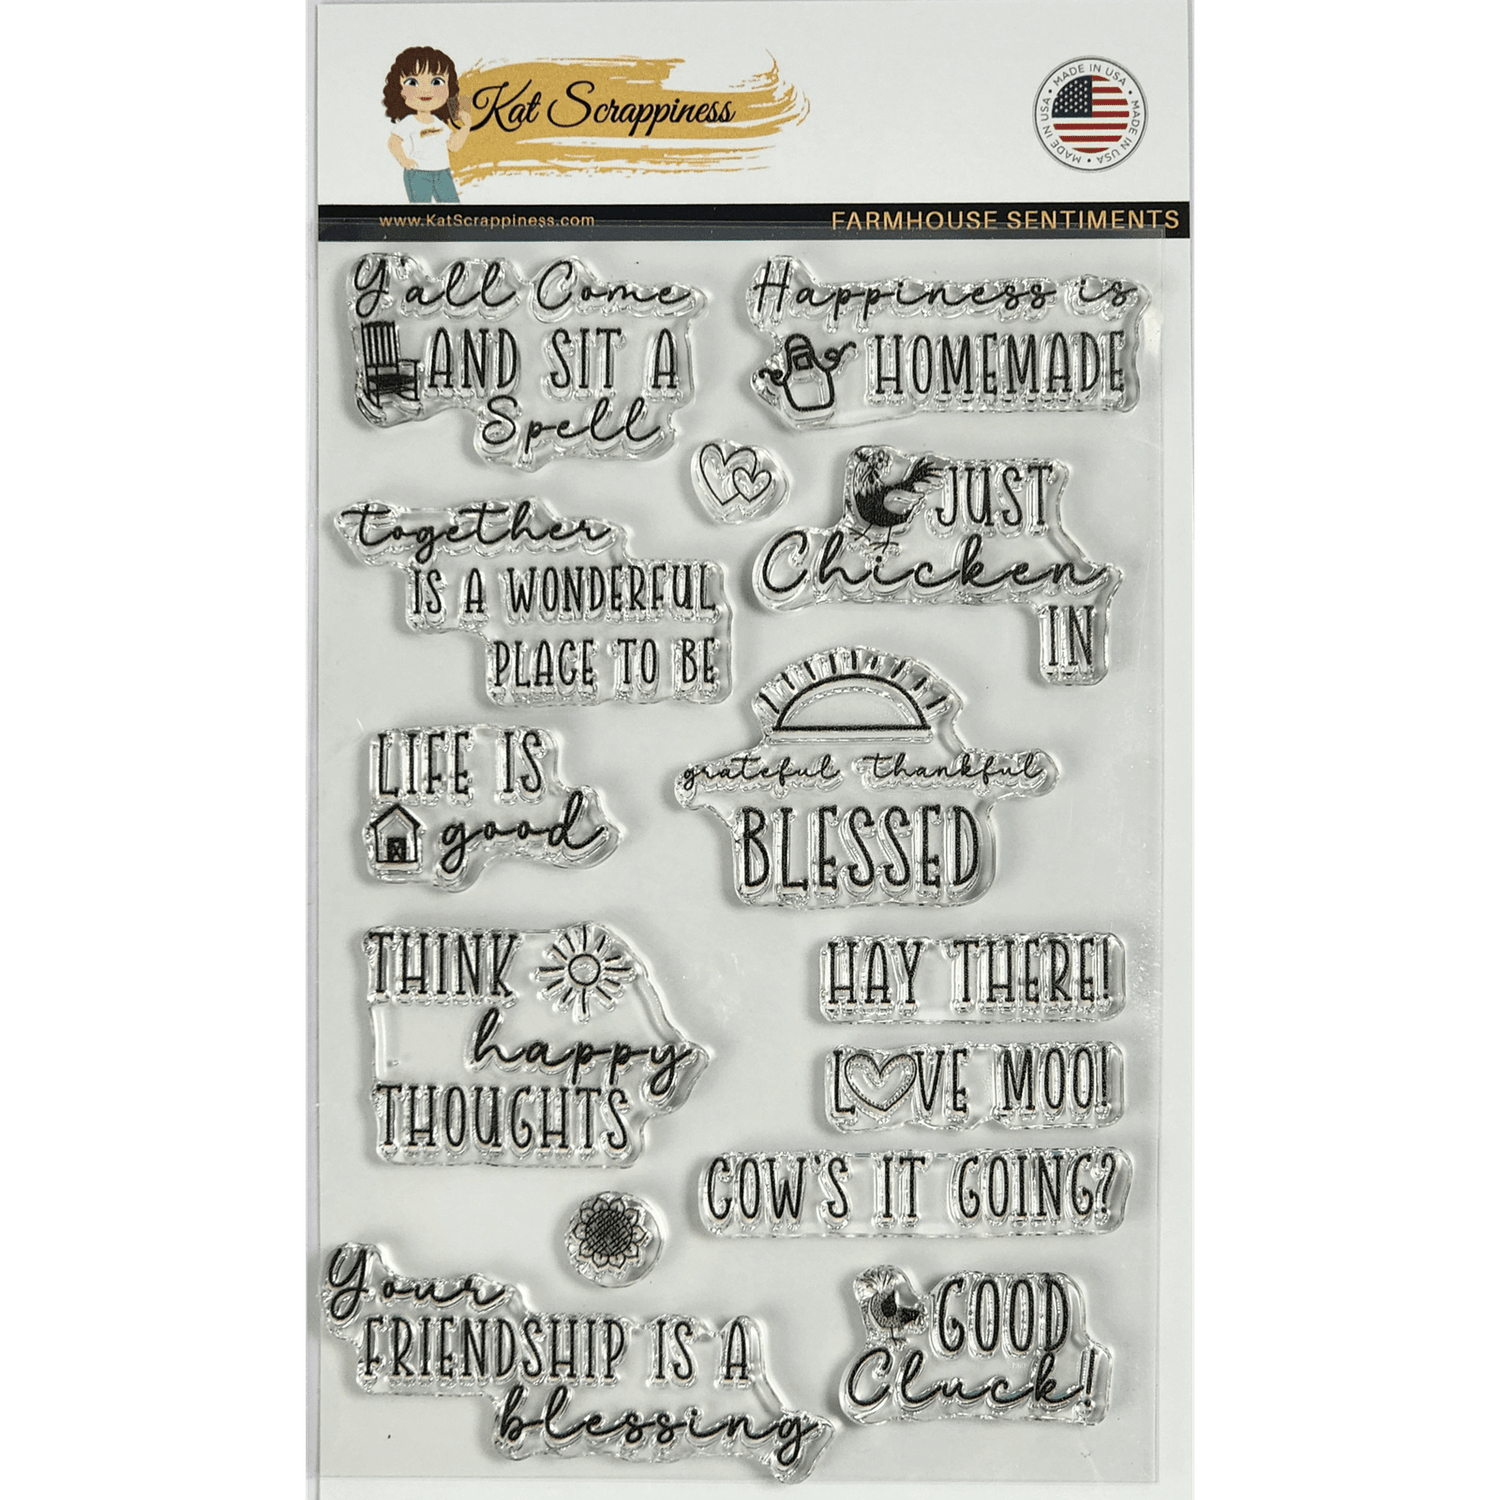 Kat Scrappiness
MADE IN USA • MADE IN USA • MADE IN USA •
www.KatScrappiness.com
FARMHOUSE SENTIMENTS
Y'all Come
AND SIT A
Spell
Happiness is
HOMEMADE
JUST
Chicken
IN
together
IS A WONDERFUL
PLACE TO BE
LIFE IS
good
grateful thankful
BLESSED
THINK
happy
THOUGHTS
HAY THERE!
LOVE MOO!
COW'S IT GOING?
Your
FRIENDSHIP IS A
blessing
GOOD
Cluck!